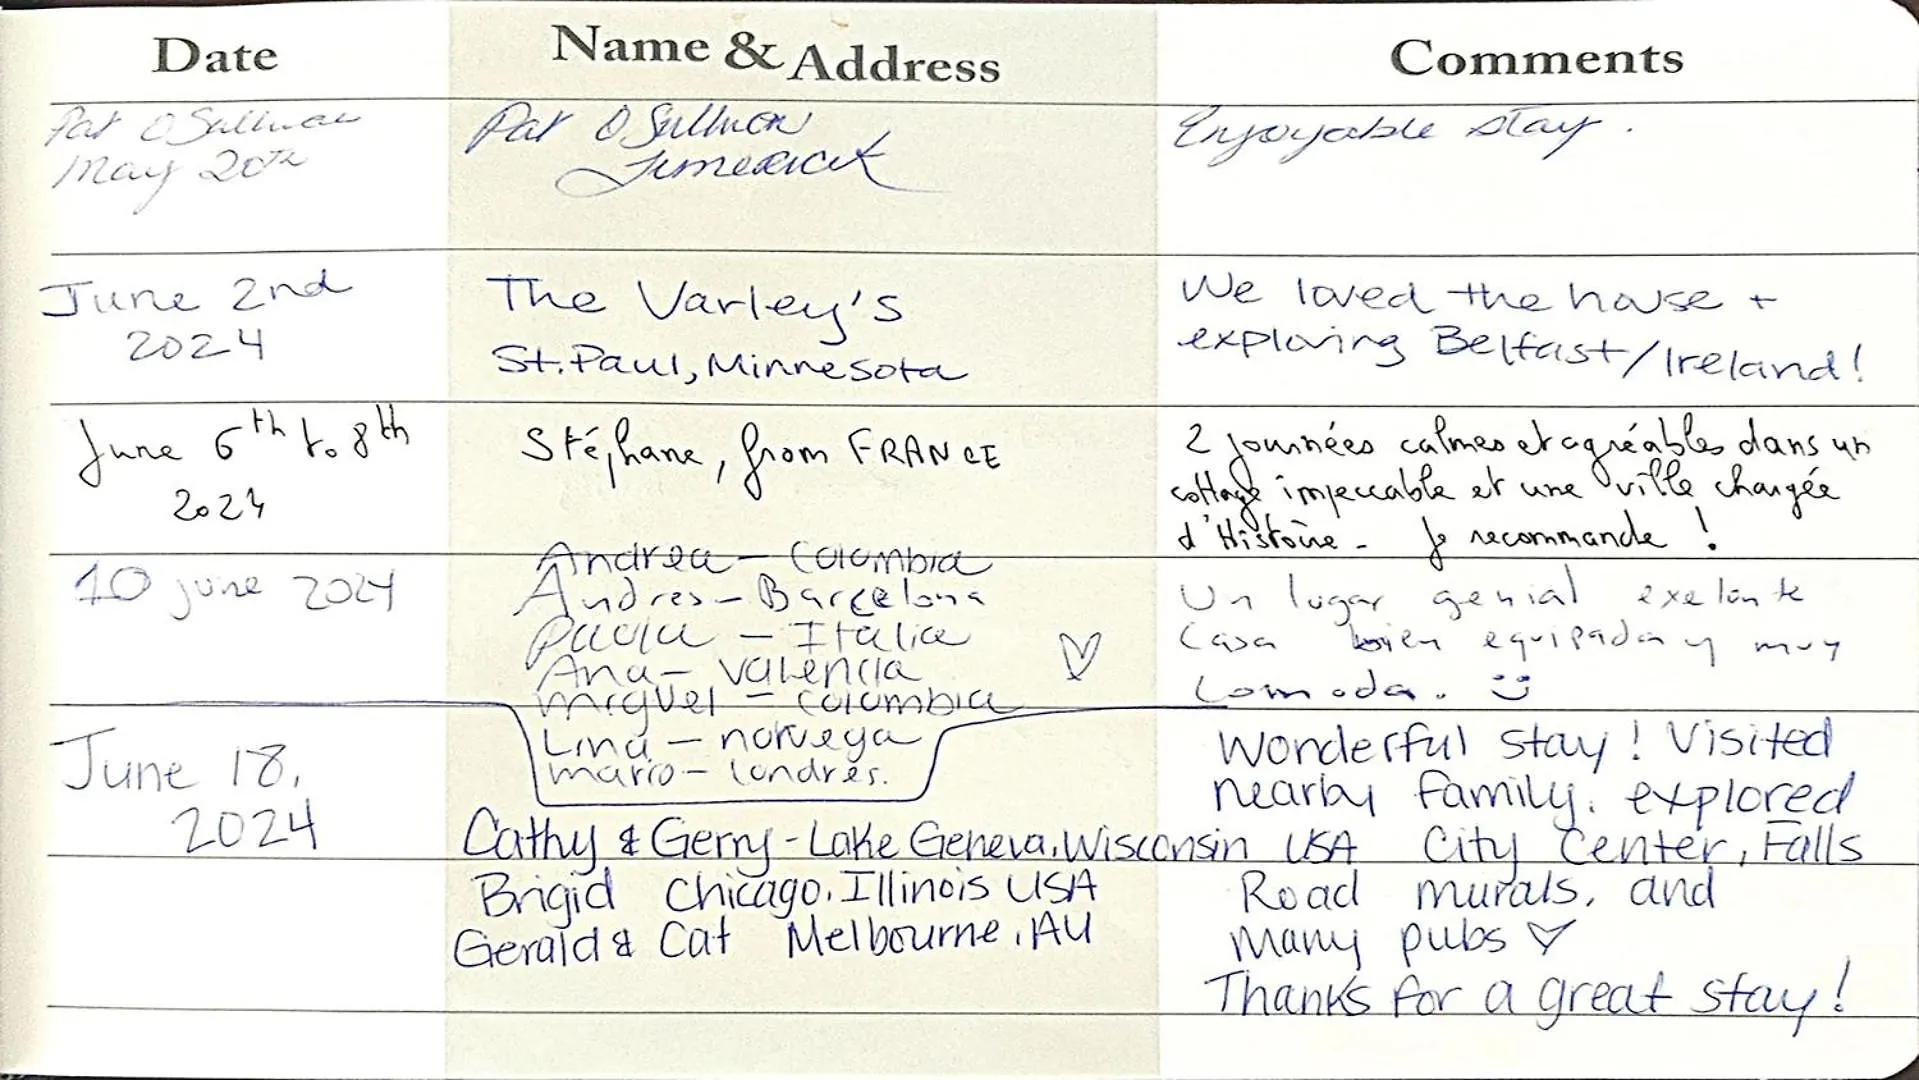 Date Name & Address Comments
Pat O Sullivan
May 20th
Pat O Sullivan
Limerick
Enjoyable stay.
June 2nd
2024
The Varley's
St. Paul, Minnesota
We loved the house +
exploring Belfast/Ireland!
June 6th to 8th
2024
Stéphane, from FRANCE
2 journées calmes et agréables dans un
cottage impeccable et une ville chargée
d'Histoire. Je recommande !
10 june 2024
Andrea - Colombia
Andres - Barcelona
Paola - Italia
Ana - Valencia
miguel - colombia
Lina - noruega
mario - londres.
Un lugar genial exelente
casa bien equipada y muy
comoda.
June 18,
2024
Cathy & Gerry - Lake Geneva, Wisconsin USA
Brigid Chicago, Illinois USA
Gerald & Cat Melbourne, AU
Wonderful stay! Visited
nearby family, explored
City Center, Falls
Road murals, and
many pubs
Thanks for a great stay!